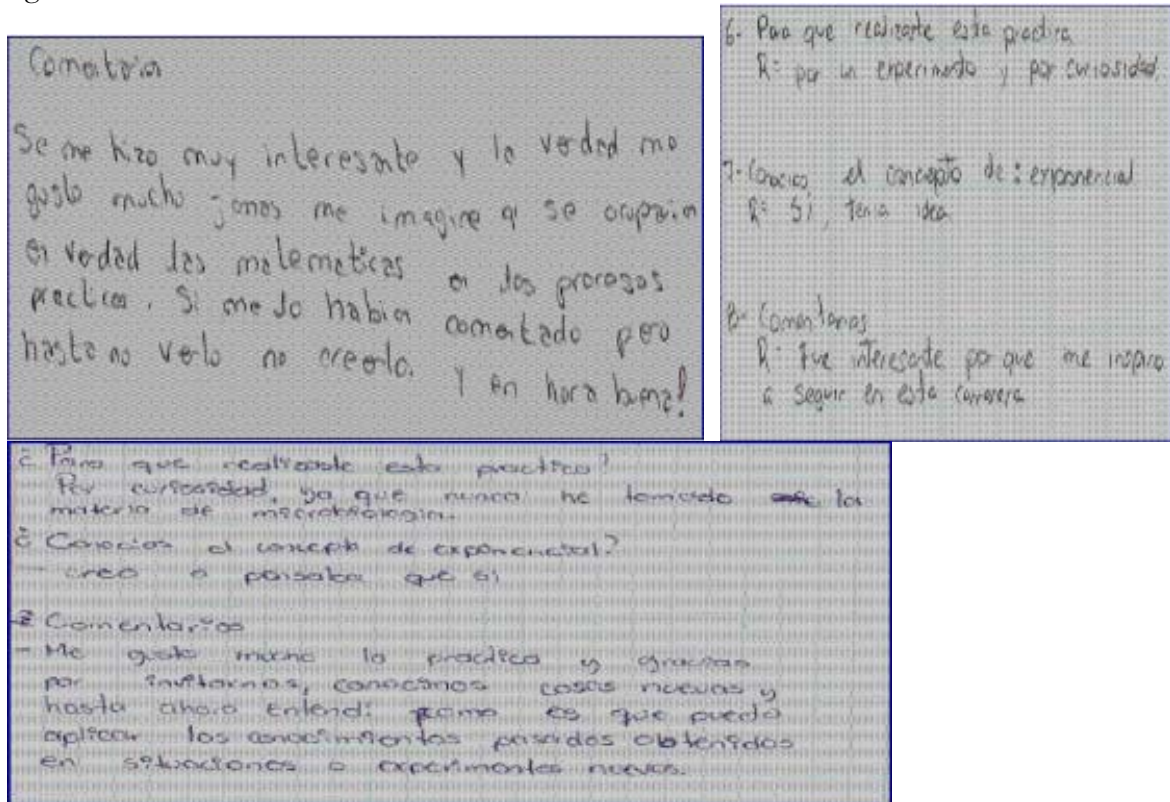 Comentarios
Se me hizo muy interesante y la verdad me
gusto mucho jamas me imagine q se ocuparian
en verdad las matematicas en los procesos
practicos. Si me lo habian comentado pero
hasta no verlo no creerlo. Y en hora buena!
6- Para que realizaste esta practica
R= por un experimento y por curiosidad
7- Conocias el concepto de: exponencial
R= Si, tenia idea
8- Comentarios
R= Fue interesante por que me inspiro
a seguir en esta carrera
¿Para que realizaste esta practica?
Por curiosidad, ya que nunca he tomado la
materia de microbiologia.
¿Conocias el concepto de exponencial?
- creo o pensaba que si
Comentarios
- Me gusto mucho la practica y gracias
por invitarnos, conocimos cosas nuevas y
hasta ahora entendi como es que puedo
aplicar los conocimientos pasados obtenidos
en situaciones o experimentos nuevos.